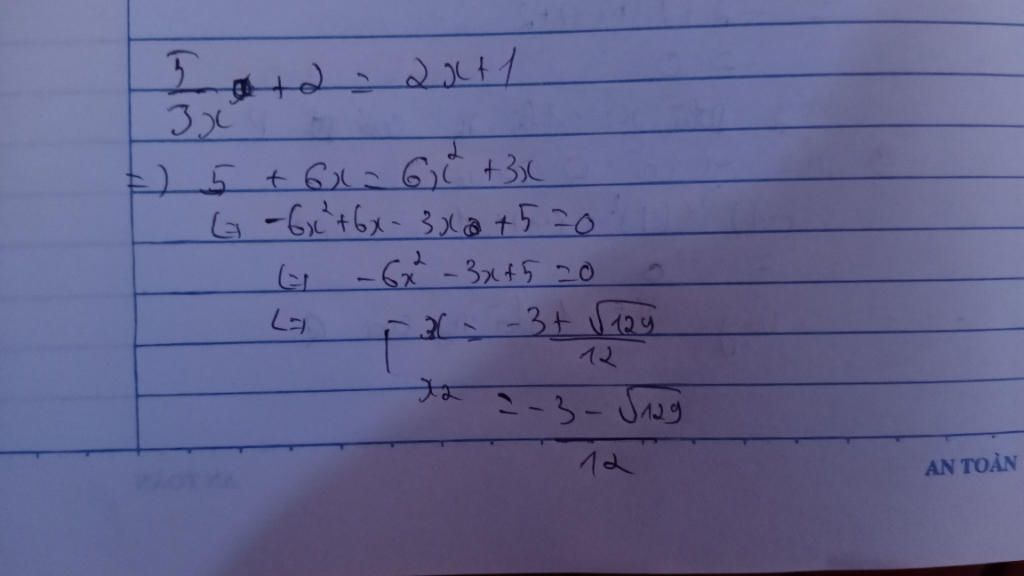 5/3x + 2 = 2x+1
=) 5 + 6x = 6x² + 3x
(=) -6x² + 6x - 3x + 5 = 0
(=) -6x² - 3x + 5 = 0
(=) x = -3 + √129 / 12
x2 = -3 - √129 / 12
AN TOÀN